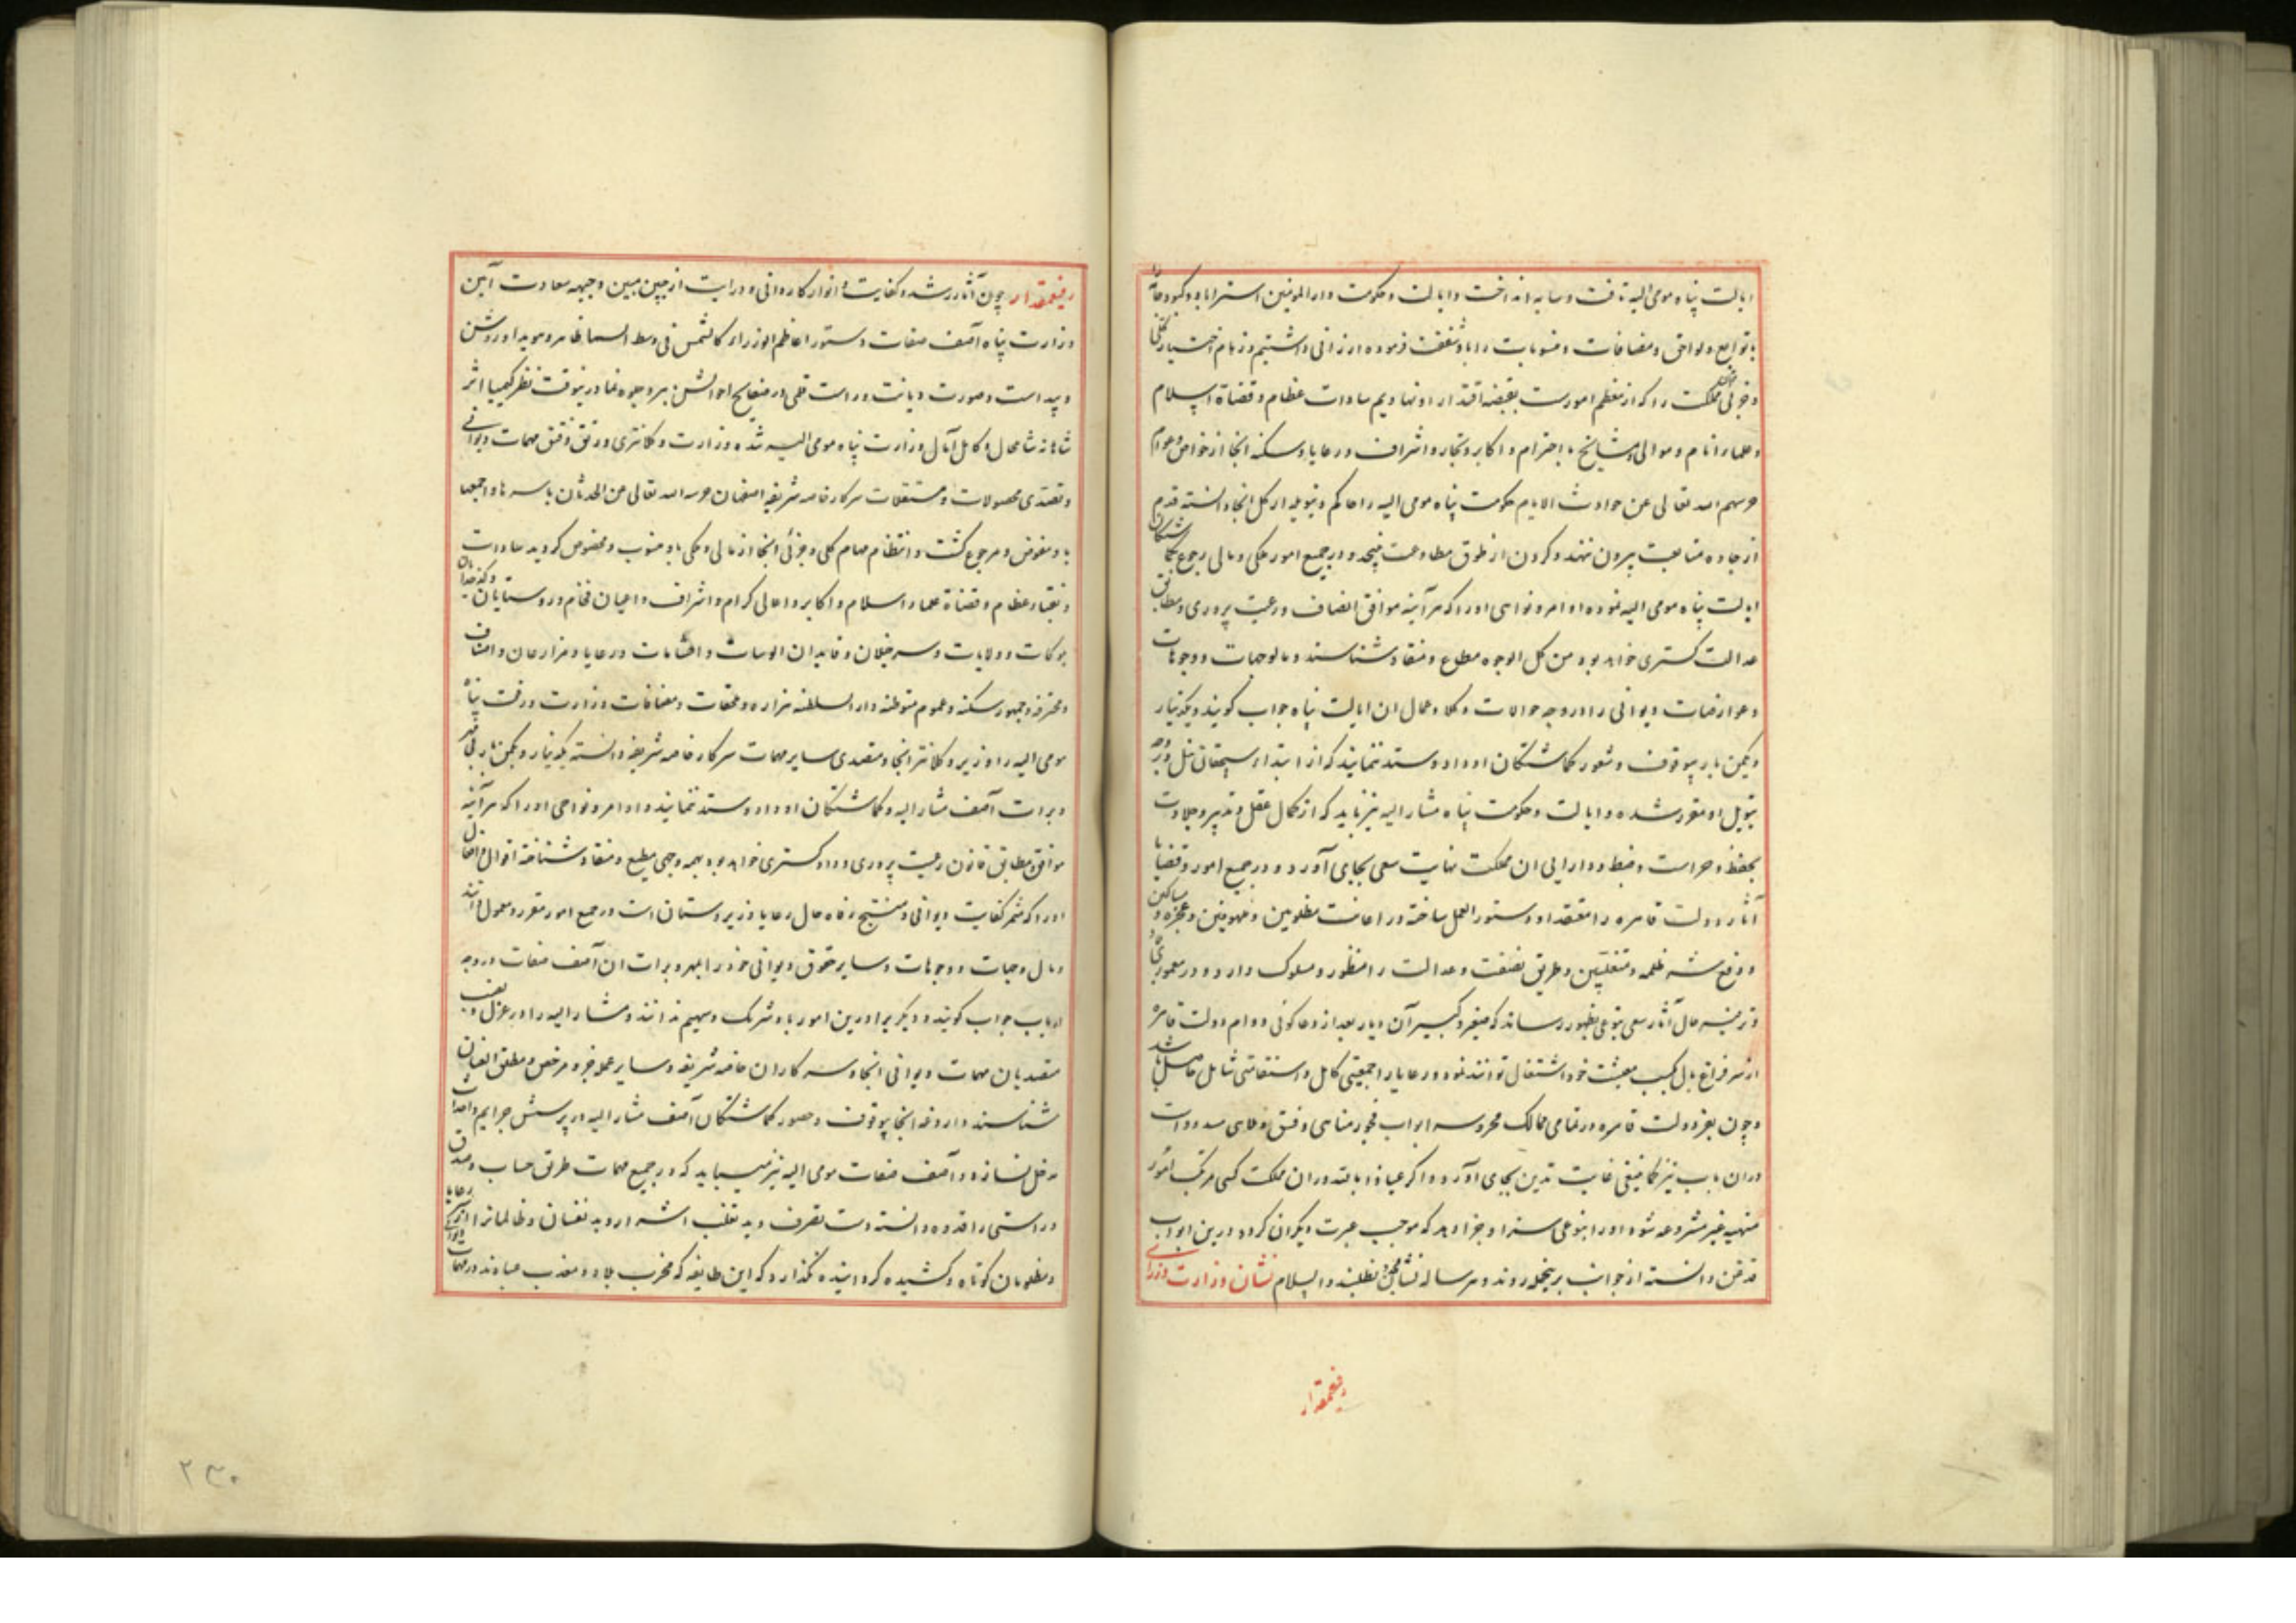 ایالت پناه مومی الیه تافت و سایه انداخت و ایالت و حکومت دار المومنین استراباد و کبود جامه را
با توابع و لواحق و مضافات و منسوبات را باو شفقت فرموده ارزانی داشتیم و زمام اختیار کلی
و جزئی مملکت را که از معظم امورست بقبضه اقتدار او نهادیم سادات عظام و قضاة اسلام
و علماء انام و موالی و مشایخ با احترام و اکابر و تجار و اشراف و رعایا و سکنه انجا از خواص و عوام
حرسهم الله تعالی عن حوادث الایام حکومت پناه مومی الیه را حاکم و تیولدار کل انجا دانسته قدم
از جاده متابعت بیرون ننهند و کردن از طوق مطاوعت نپیچند و در جمیع امور ملکی و مالی رجوع بکماشتکان
ایالت پناه مومی الیه نموده اوامر و نواهی او را که هر آینه موافق انصاف و رعیت پروری و مطابق
عدالت کستری خواهد بود من کل الوجوه مطاع و منقاد شناسند و مالوجهات و وجوهات
و عوارضات دیوانی را در وجه حوالات وکلاء عمال ان ایالت پناه جواب کویند و یکدینار
و یکمن بار بیوقوف و شعور کماشتکان او داد و ستد ننمایند که از ابتداء سیچقان ئیل در وجه
تیول او مقرر شده و ایالت و حکومت پناه مشار الیه نیز باید که از کمال عقل و تدبیر و جلادت
بحفظ و حراست و ضبط و دارایی ان مملکت نهایت سعی بجای آورد و در جمیع امور و قضایا
آثار دولت قاهره را مقتدا و دستور العمل ساخته در اعانت مظلومین و ملهوفین و عجزه و مساکین
و دفع شر ظلمه و متغلبین و طریق نصفت و عدالت را منظور و مسلوک دارد و در معموری
و ترفیه حال آثار سعی بنوعی بظهور رساند که صغیر و کبیر آن دیار بعد از دعا کوئی دوام دولت قاهره
از سر فراغ بال بکسب معیشت خود اشتغال توانند نمود و رعایا را جمعیتی کامل و استقامتی شامل حاصل باشد
و چون بفر دولت قاهره در تمامی ممالک محروسه ابواب فجور و مناهی و فسق و ملاهی مسدود است
در ان باب نیز کما ینبغی غایت تدین بجای آورد و اکر عیاذا بالله در ان مملکت کسی مرتکب امور
منهیه غیر مشروعه شود او را بنوعی سزا و جزا دهد که موجب عبرت دیکران کردد درین ابواب
قدغن دانسته از جوانب برینجمله روند و هر ساله نشان مجدد نطلبند والسلام نشان وزارت وزرای
رفیعمقدار
رفیعمقدار چون آثار رشد و کفایت و انوار کاردانی و درایت از جبین مبین و جبهه سعادت آیین
وزارت پناه آصف صفات دستور اعاظم الوزراء کالشمس فی وسط السما ظاهر و هویدا و روشن
و پیداست و صورت دیانت و راست قلمی در صفایح احوالش بهر وجه جلوه نما درینوقت نظر کیمیا اثر
شاهانه شامحال و کافل آمال وزارت پناه مومی الیه شده وزارت و کلانتری و رتق و فتق مهمات دیوانی
و تصدی محصولات و مستغلات سرکار خاصه شریفه اصفهان حرسه الله تعالی عن الحدثان باسرها و اجمعها
باو مفوض و مرجوع کشت و انتظام مهام کلی و جزئی انجا از مالی و ملکی باو منسوب و مخصوص کردید سادات
و نقباء عظام و قضاة علماء اسلام و اکابر و اهالی کرام و اشراف و اعیان فخام و روستایان و کدخدایان
بلوکات و ولایات و سرخیلان و قایدان الوسات و اقشامات و رعایا و مزارعان و اصناف
و محترفه و جمهور سکنه و عموم متوطنه دار السلطنه مزاره و ملحقات و مضافات وزارت و رفعت پناه
مومی الیه را وزیر و کلانتر انجا و متصدی سایر مهمات سرکار خاصه شریفه دانسته یکدینار و یکمن بار بی مهر
و برات آصف مشار الیه و کماشتکان او داد و ستد ننمایند و اوامر و نواهی او را که هر آینه
موافق و مطابق قانون رعیت پروری و داد کستری خواهد بود بهمه وجهی مطیع و منقاد شناخته اقوال و افعال
او را که مثمر کفایت دیوانی و منتج رفاه حال رعایا و زیردستان است در جمیع امور مقرر و معمول دانند
و مال و جهات و وجوهات و سایر حقوق دیوانی خود را بمهر و برات ان آصف صفات در وجه
ارباب جواب کویند و دیکری را درین امور باو شریک و سهیم ندانند و مشار الیه را در عزل و نصب
متصدیان مهمات دیوانی انجا و سرکاران خاصه شریفه و سایر عمله جزو مرخص و مطلق العنان
شناسند داروغه انجا بیوقوف و حضور کماشتکان آصف مشار الیه در پرسش جرایم و احداث
مدخل نسازد و آصف صفات مومی الیه نیز میباید که در جمیع مهمات طریق حساب و صدق
و راستی را قدوه دانسته دست تصرف و ید تغلب اشرار و بد نفسان و ظالمان را از سر رعایا
و مظلومان کوتاه و کشیده کرداند و نکذارد که این طایفه که مخرب بلاد و معذب عبادند در مهمات دیوانی
۲۳۰